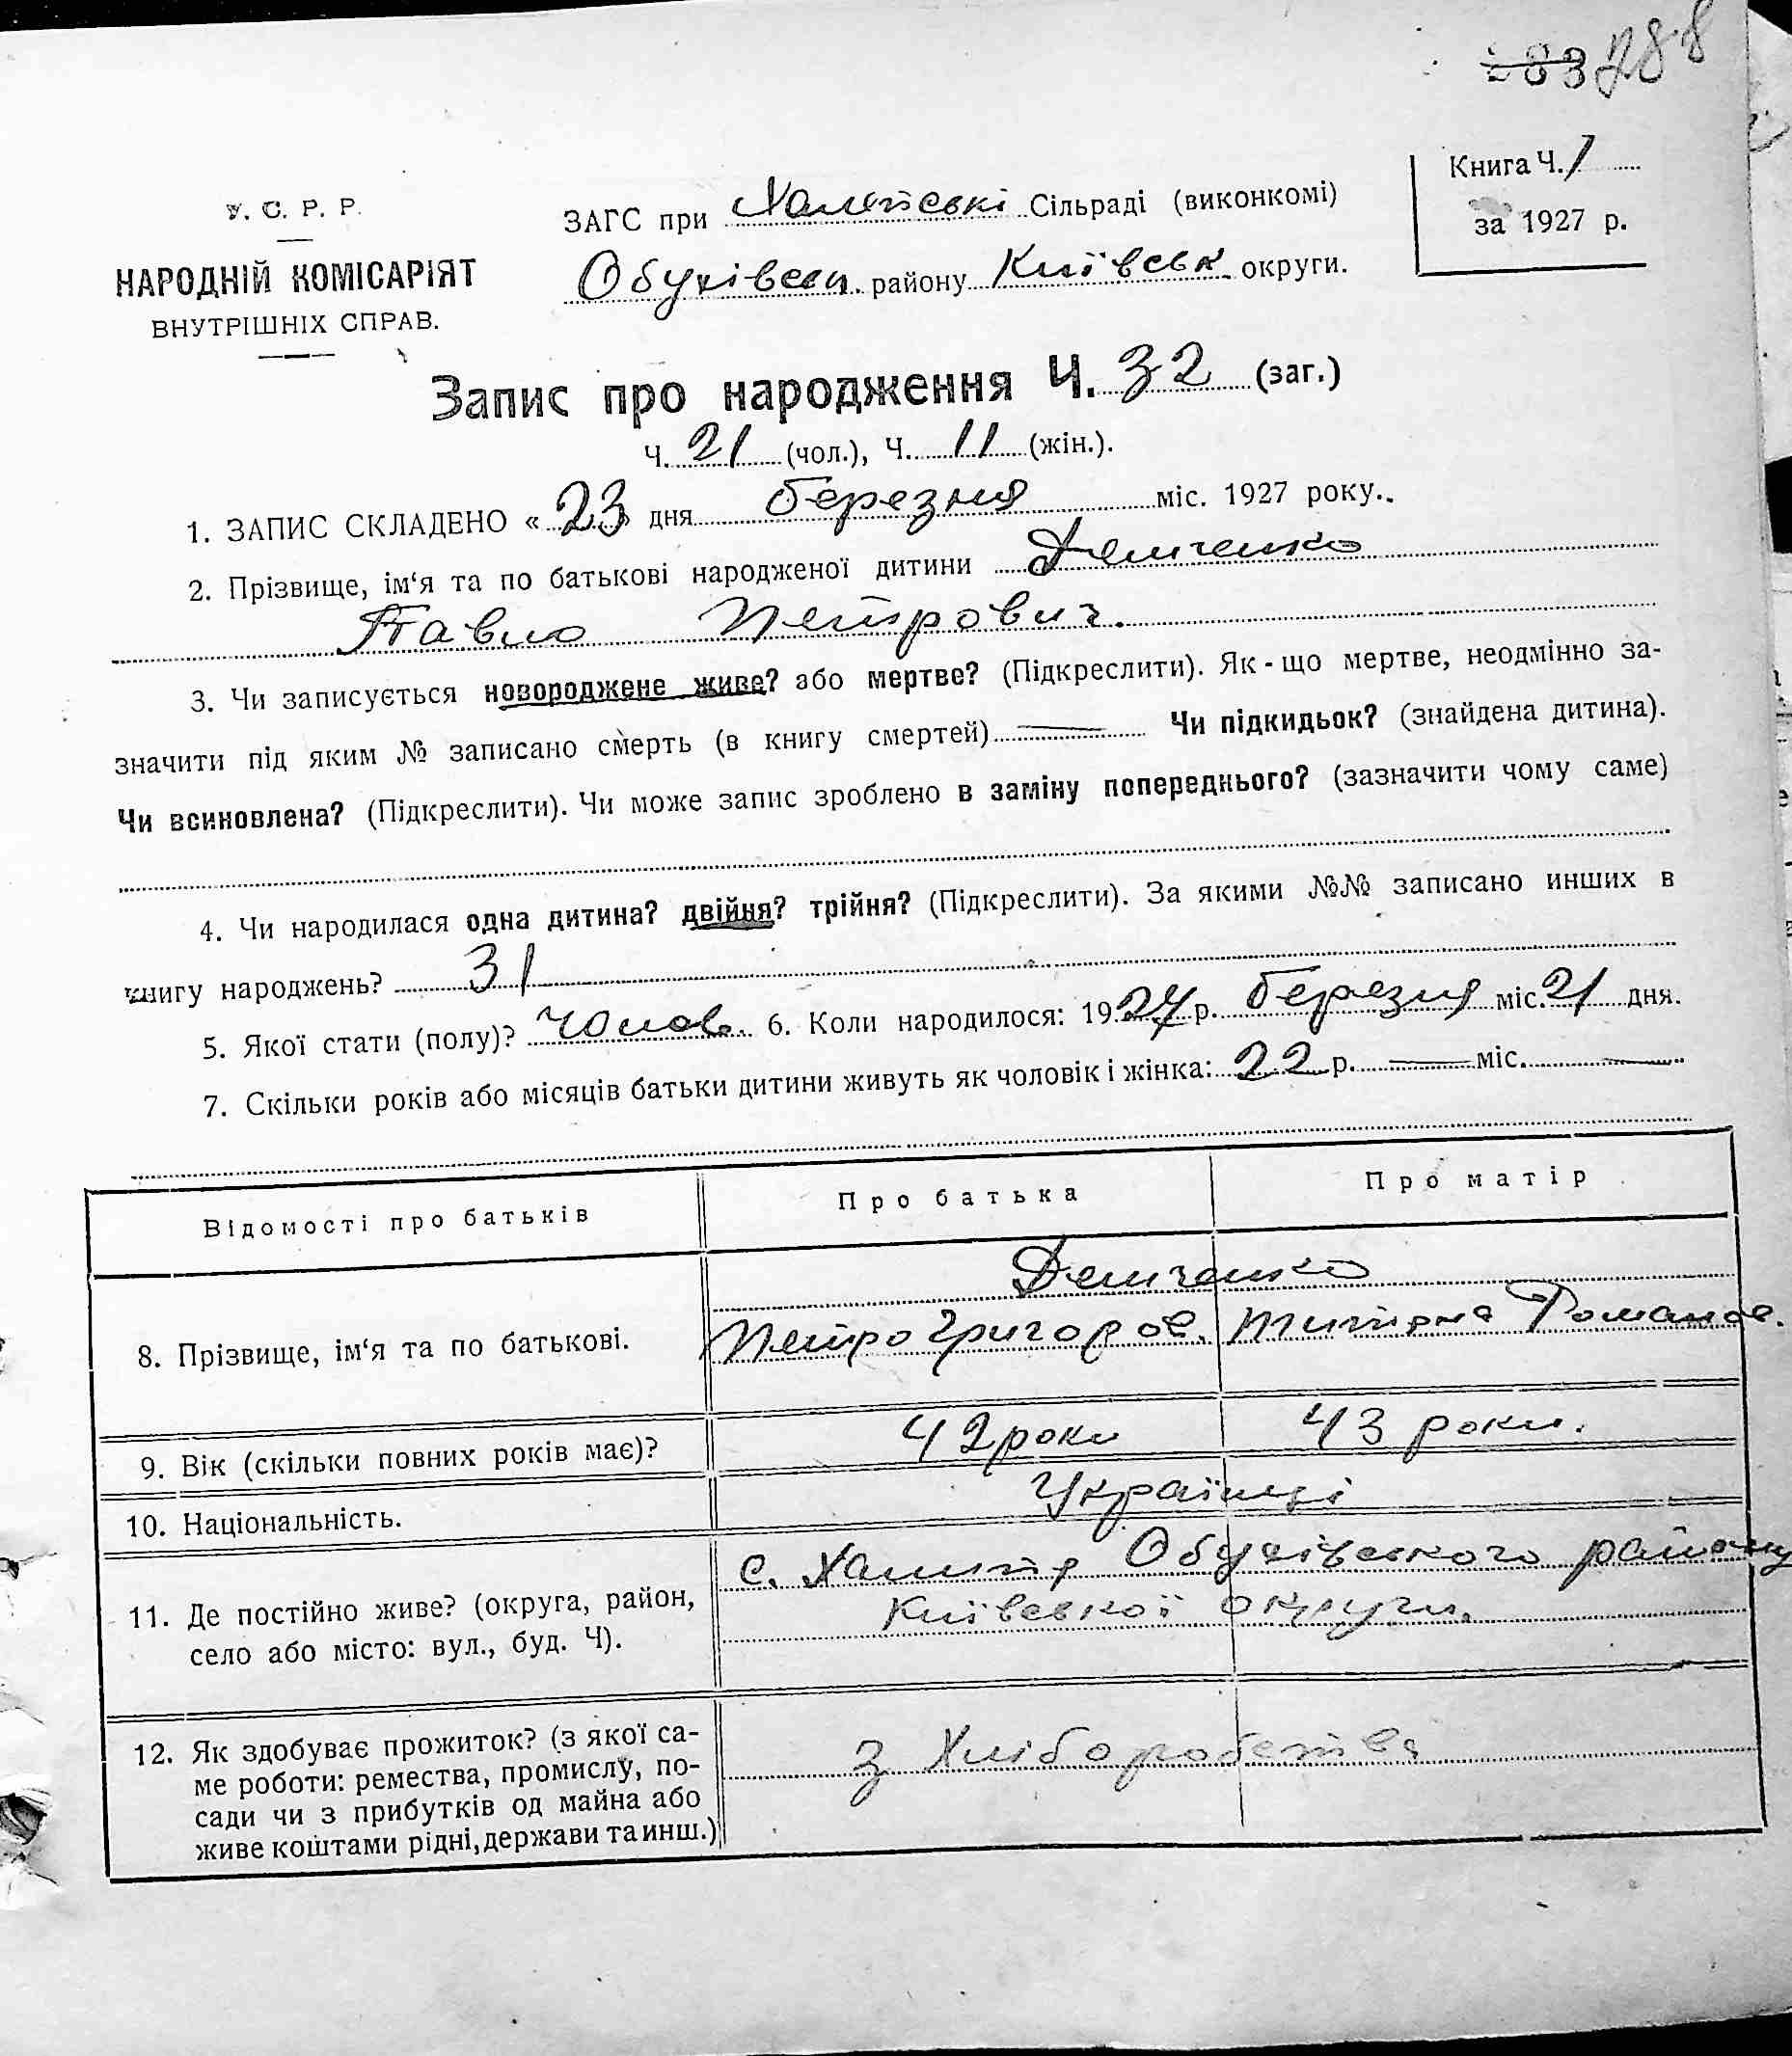 283 288
Книга Ч. 1
за 1927 р.
У. С. Р. Р.
НАРОДНІЙ КОМІСАРІЯТ
ВНУТРІШНІХ СПРАВ.
ЗАГС при Халепській Сільраді (виконкомі)
Обухівськ. району Київськ. округи.
Запис про народження Ч. 32 (заг.)
Ч. 21 (чол.), Ч. 11 (жін.).
1. ЗАПИС СКЛАДЕНО « 23 » дня березня міс. 1927 року.
2. Прізвище, ім‘я та по батькові народженої дитини Демченко
Павло Петрович.
3. Чи записується новороджене живе? або мертве? (Підкреслити). Як-що мертве, неодмінно за-
значити під яким № записано смерть (в книгу смертей) — Чи підкидьок? (знайдена дитина).
Чи всиновлена? (Підкреслити). Чи може запис зроблено в заміну попереднього? (зазначити чому саме)
4. Чи народилася одна дитина? двійня? трійня? (Підкреслити). За якими №№ записано инших в
книгу народжень? 31
5. Якої стати (полу)? чолов. 6. Коли народилося: 1927 р. березня міс. 21 дня.
7. Скільки років або місяців батьки дитини живуть як чоловік і жінка: 22 р. — міс. —
Відомості про батьків Про батька Про матір
Демченко
8. Прізвище, ім‘я та по батькові. Петро Григоров. Романов.
9. Вік (скільки повних років має)? 42 роки 43 роки.
10. Національність. Українці
11. Де постійно живе? (округа, район, с. Халепʼя Обухівського району
село або місто: вул., буд. Ч). Київської округи.
12. Як здобуває прожиток? (з якої са-
ме роботи: ремества, промислу, по-
сади чи з прибутків од майна або
живе коштами рідні, держави та инш.)
з Хліборобства